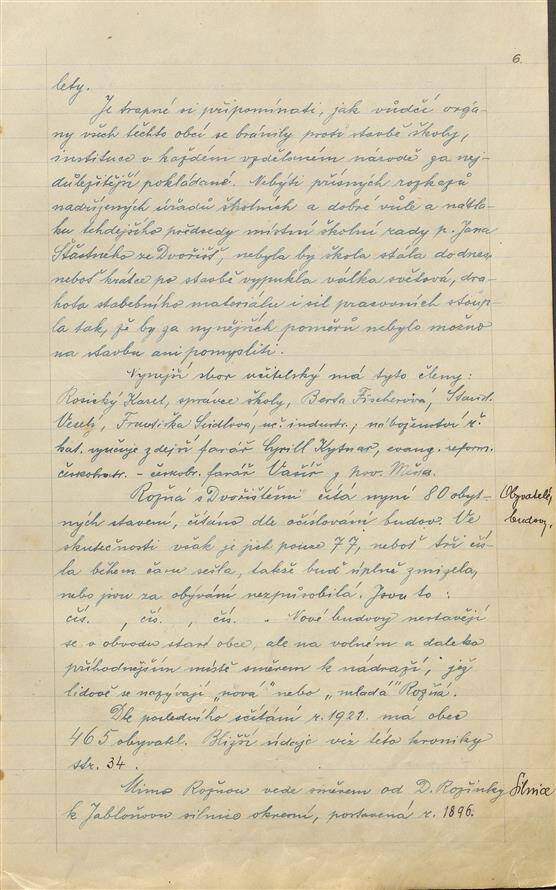 6.
lety.
Je trapné si připomínati, jak vůdčí orgá-
ny všech těchto obcí se bránily proti stavbě školy,
instituce v každém vzdělaném národě za nej-
důležitější pokládané. Nebýti přísných rozkazů
nadřízených úřadů školních a dobré vůle a nátla-
ku tehdejšího předsedy místní školní rady p. Jana
Šťastného ze Dvořišť, nebyla by škola stála dodnes,
neboť krátce po stavbě vypukla válka světová, dra-
hota stavebního materiálu i sil pracovních stoup-
la tak, že by za nynějších poměrů nebylo možno
na stavbu ani pomysliti.
Nynější sbor učitelský má tyto členy:
Rosický Karel, správce školy, Berta Fischerová, Stanisl.
Veselý, Františka Seidlová, uč. industr.; náboženství ř.
kat. vyučuje zdejší farář Cyrill Kytnar, evang. reform.
českobratr. - českobr. farář Vašíř z Nov. Města.
Rožná s Dvořištěm čítá nyní 80 obyt-
ných stavení, čítáno dle očíslování budov. Ve
Obyvatelé,
budovy.
skutečnosti však je jich pouze 77, neboť tři čís-
la během času sešla, takže buď úplně zmizela,
nebo jsou za obývání nezpůsobilá. Jsou to:
čís. , čís. , čís. . Nové budovy nestavějí
se v obvodu staré obce, ale na volném a daleko
příhodnějším místě směrem k nádraží, jež
lidově se nazývají „nová" nebo „mladá" Rožná.
Dle posledního sčítání r. 1921. má obec
465 obyvatel. Bližší údaje viz této kroniky
str. 34.
Mimo Rožnou vede směrem od D. Rožínky
Silnice
k Jabloňovu silnice okresní, postavená r. 1896.